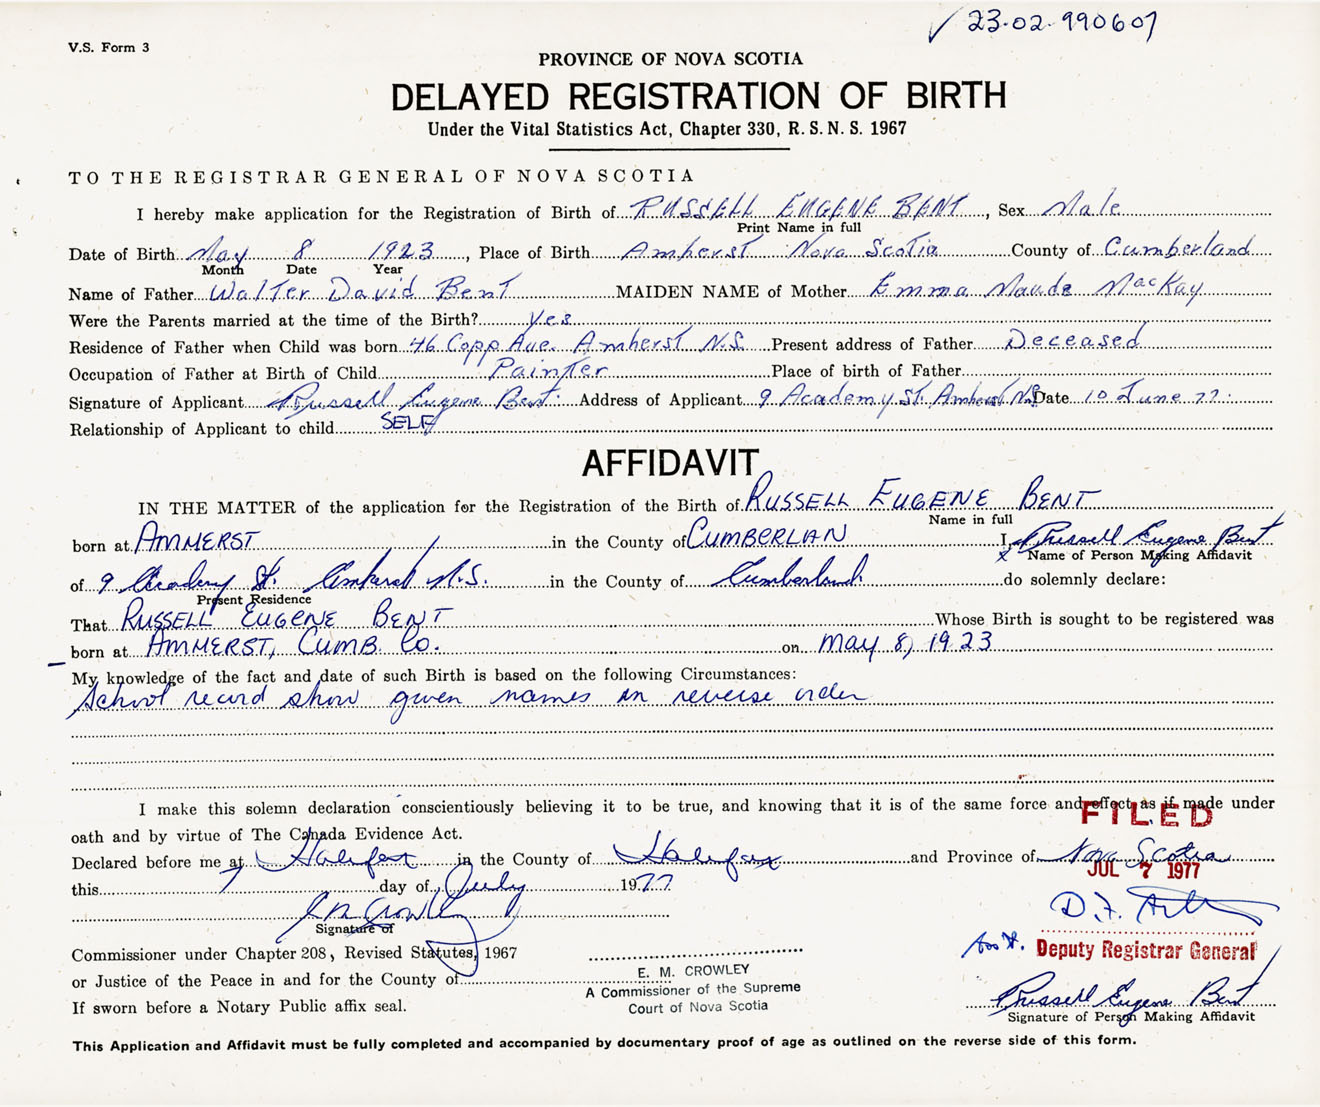 23-02-990607
V.S. Form 3
PROVINCE OF NOVA SCOTIA
DELAYED REGISTRATION OF BIRTH
Under the Vital Statistics Act, Chapter 330, R.S.N.S. 1967
TO THE REGISTRAR GENERAL OF NOVA SCOTIA
I hereby make application for the Registration of Birth of RUSSELL EUGENE BENT, Sex Male
Print Name in full
Date of Birth May 8 1923, Place of Birth Amherst Nova Scotia County of Cumberland
Month Date Year
Name of Father Walter David Bent MAIDEN NAME of Mother Emma Maude MacKay
Were the Parents married at the time of the Birth? Yes
Residence of Father when Child was born 46 Copp Ave. Amherst N.S. Present address of Father Deceased
Occupation of Father at Birth of Child Painter Place of birth of Father
Signature of Applicant Russell Eugene Bent Address of Applicant 9 Academy St. Amherst N.S. Date 10 June 77.
Relationship of Applicant to child SELF
AFFIDAVIT
IN THE MATTER of the application for the Registration of the Birth of RUSSELL EUGENE BENT
Name in full
born at AMHERST in the County of CUMBERLAN I, Russell Eugene Bent
x Name of Person Making Affidavit
of 9 Academy St. Amherst N.S. in the County of Cumberland do solemnly declare:
Present Residence
That RUSSELL EUGENE BENT Whose Birth is sought to be registered was
born at AMHERST, CUMB. Co. on May 8, 1923
My knowledge of the fact and date of such Birth is based on the following Circumstances:
School record show given names in reverse order
I make this solemn declaration conscientiously believing it to be true, and knowing that it is of the same force and effect as if made under
oath and by virtue of The Canada Evidence Act.
FILED
Declared before me at Halifax in the County of Halifax and Province of Nova Scotia
JUL 7 1977
this 7 day of July 1977
E M Crowley
Signature of
D.F.
Commissioner under Chapter 208, Revised Statutes, 1967
Ass't. Deputy Registrar General
or Justice of the Peace in and for the County of
E. M. CROWLEY
A Commissioner of the Supreme
Court of Nova Scotia
If sworn before a Notary Public affix seal.
Russell Eugene Bent
Signature of Person Making Affidavit
This Application and Affidavit must be fully completed and accompanied by documentary proof of age as outlined on the reverse side of this form.